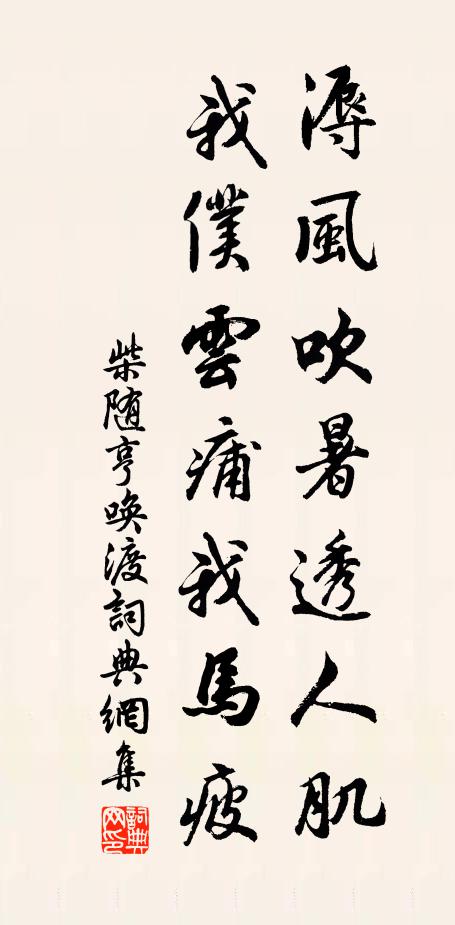 溽風吹暑透人肌
我僕雲痡我馬疲
柴随亨喚渡詞典網集
詞典網印